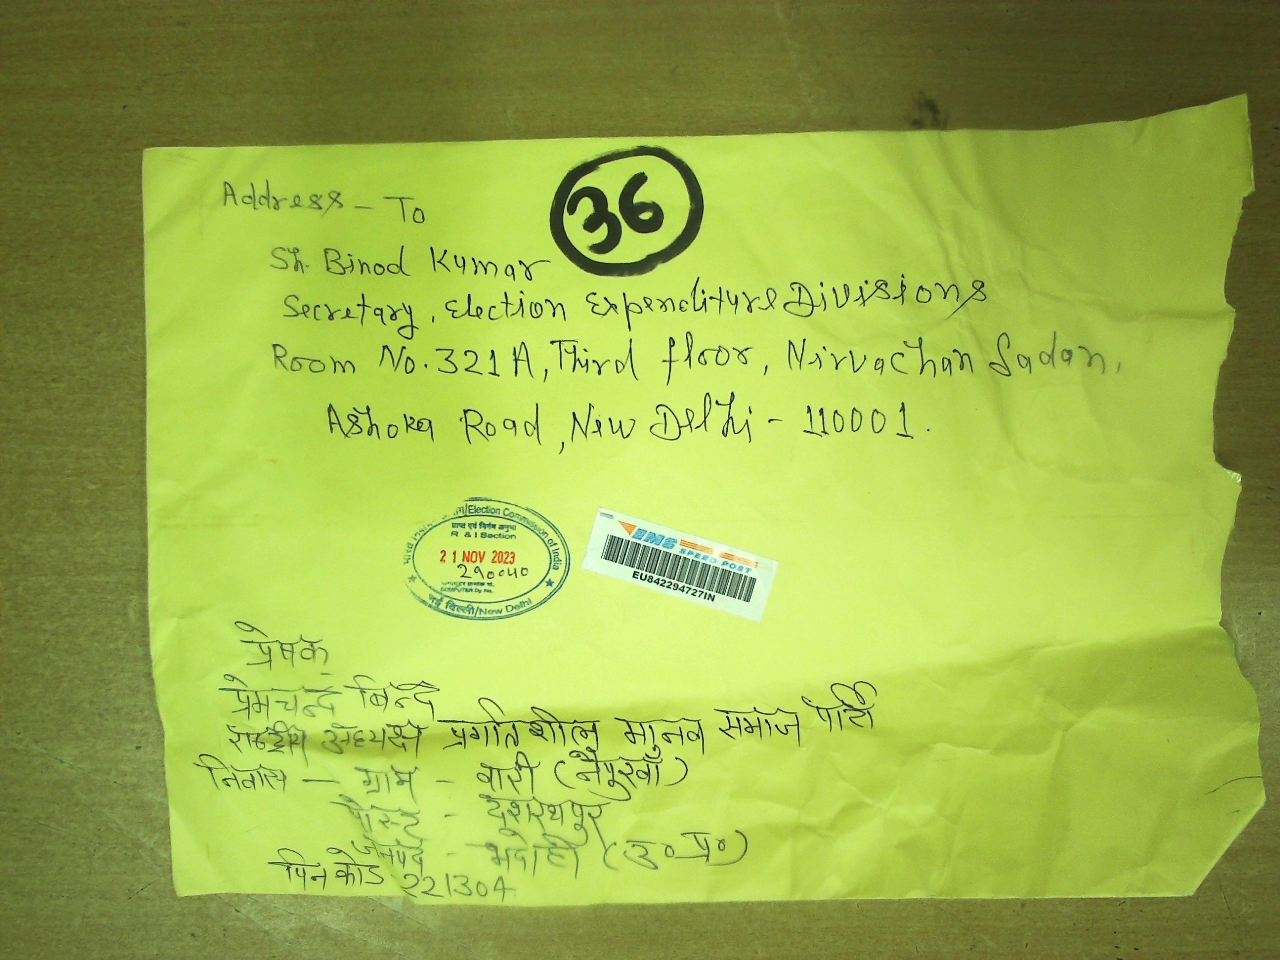 Address - To
36
Sh. Binod Kumar
Secretary, Election Expenditure Divisions
Room No. 321A, Third floor, Nirvachan Sadan,
Ashoka Road, New Delhi - 110001.
/Election Commission of India
R & I Section
21 NOV 2023
290040
COMPUTER Dy. No.
नई दिल्ली/New Delhi
EMS
SPEED POST
EU842294727IN
प्रेषक
प्रेमचन्द बिन्द
राष्ट्रीय अध्यक्ष प्रगतिशील मानव समाज पार्टी
निवास - ग्राम - वारी (नैपुरवाँ)
पोस्ट - दशरथपुर
जनपद - भदोही (उ०प्र०)
पिन कोड 221304